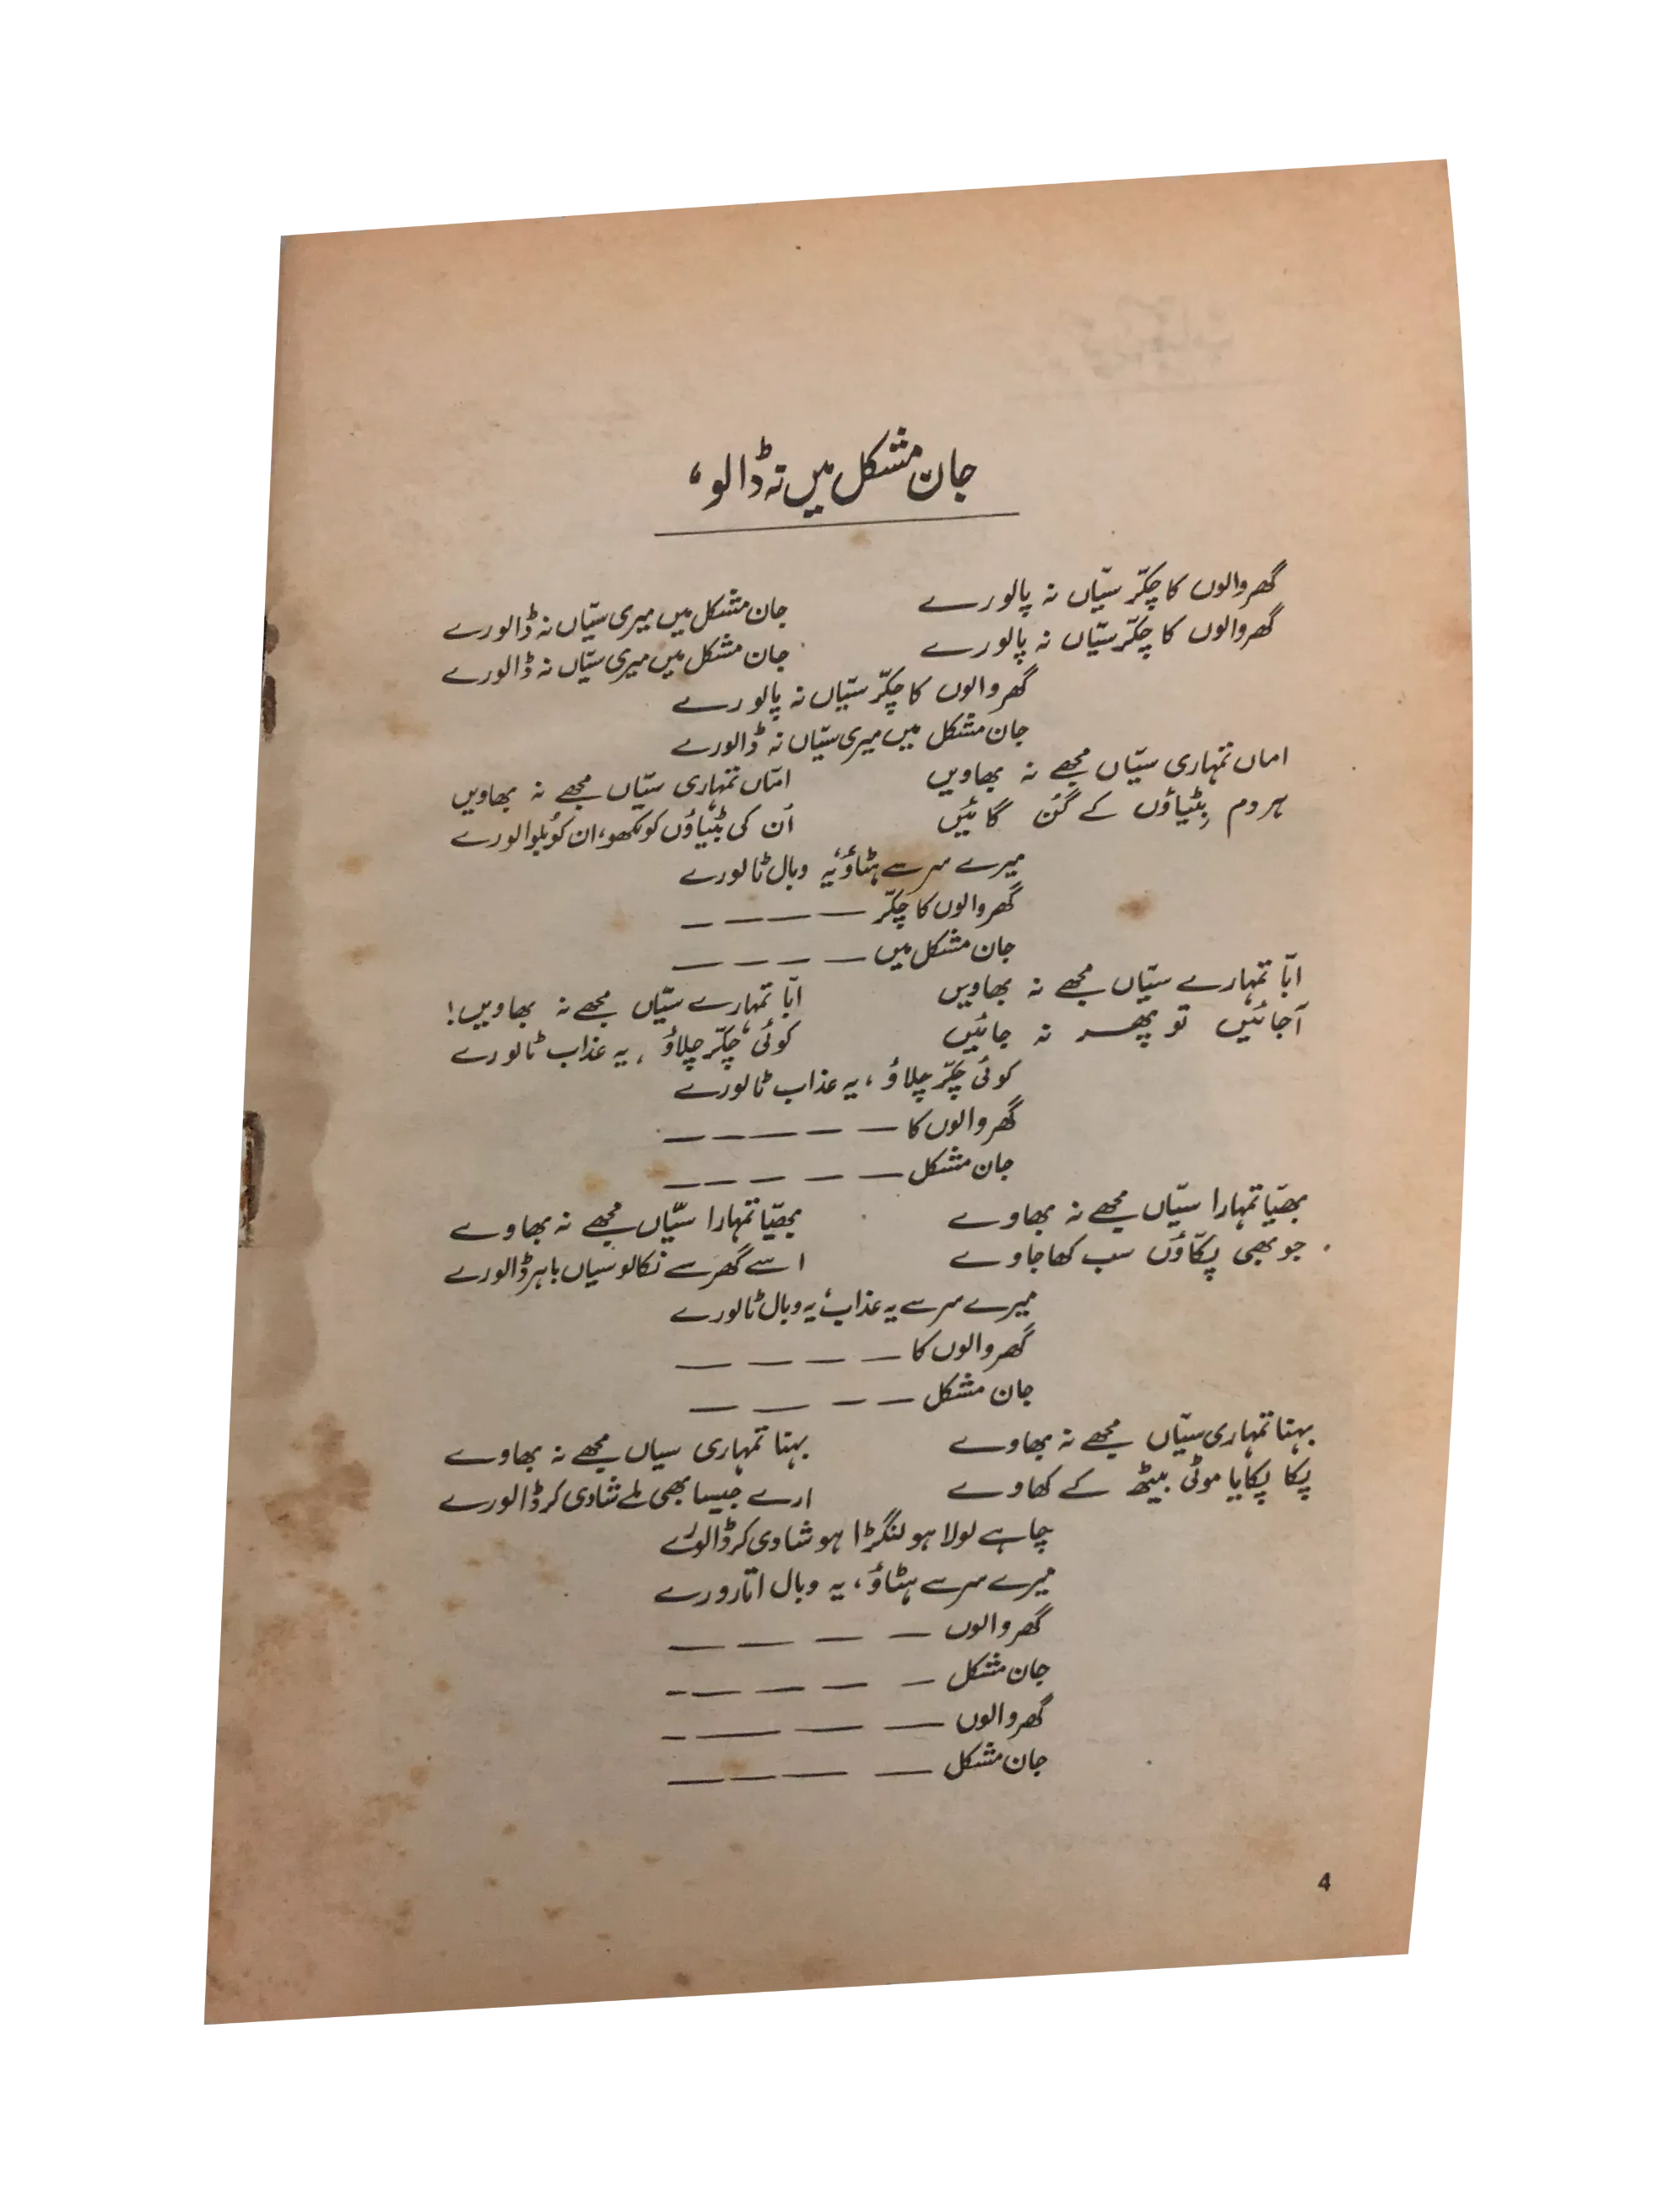 جان مشکل میں نہ ڈالو،
گھر والوں کا چکّر سیّاں نہ پالو رے جان مشکل میں میری سیّاں نہ ڈالو رے
گھر والوں کا چکّر سیّاں نہ پالو رے جان مشکل میں میری سیّاں نہ ڈالو رے
گھر والوں کا چکّر سیّاں نہ پالو رے
جان مشکل میں میری سیّاں نہ ڈالو رے
اماں تمہاری سیّاں مجھے نہ بھاویں امّاں تمہاری سیّاں مجھے نہ بھاویں
ہر دم بِٹیاؤں کے گُن گائیں اُن کی بٹیاؤں کو لکھو، ان کو بلوالو رے
میرے سر سے ہٹاؤ، یہ وبال ٹالو رے
گھر والوں کا چکّر — — — —
جان مشکل میں — — — —
ابّا تمہارے سیّاں مجھے نہ بھاویں ابّا تمہارے سیّاں مجھے نہ بھاویں!
آجائیں تو پھر نہ جائیں کوئی چکّر چلاؤ، یہ عذاب ٹالو رے
کوئی چکّر چلاؤ، یہ عذاب ٹالو رے
گھر والوں کا — — — — —
جان مشکل — — — — —
بھیّا تمہارا سیّاں مجھے نہ بھاوے بھیّا تمہارا سیّاں مجھے نہ بھاوے
جو بھی پکاؤں سب کھا جاوے اسے گھر سے نکالو سیاں باہر ڈالو رے
میرے سر سے یہ عذاب، یہ وبال ٹالو رے
گھر والوں کا — — — —
جان مشکل — — — —
بہنا تمہاری سیّاں مجھے نہ بھاوے بہنا تمہاری سیاں مجھے نہ بھاوے
پکا پکایا موٹی بیٹھ کے کھاوے ارے جیسا بھی ملے شادی کر ڈالو رے
چاہے لولا ہو لنگڑا ہو شادی کر ڈالو رے
میرے سر سے ہٹاؤ، یہ وبال اتارو رے
گھر والوں — — — —
جان مشکل — — — — -
گھر والوں — — — -
جان مشکل — — — —
4